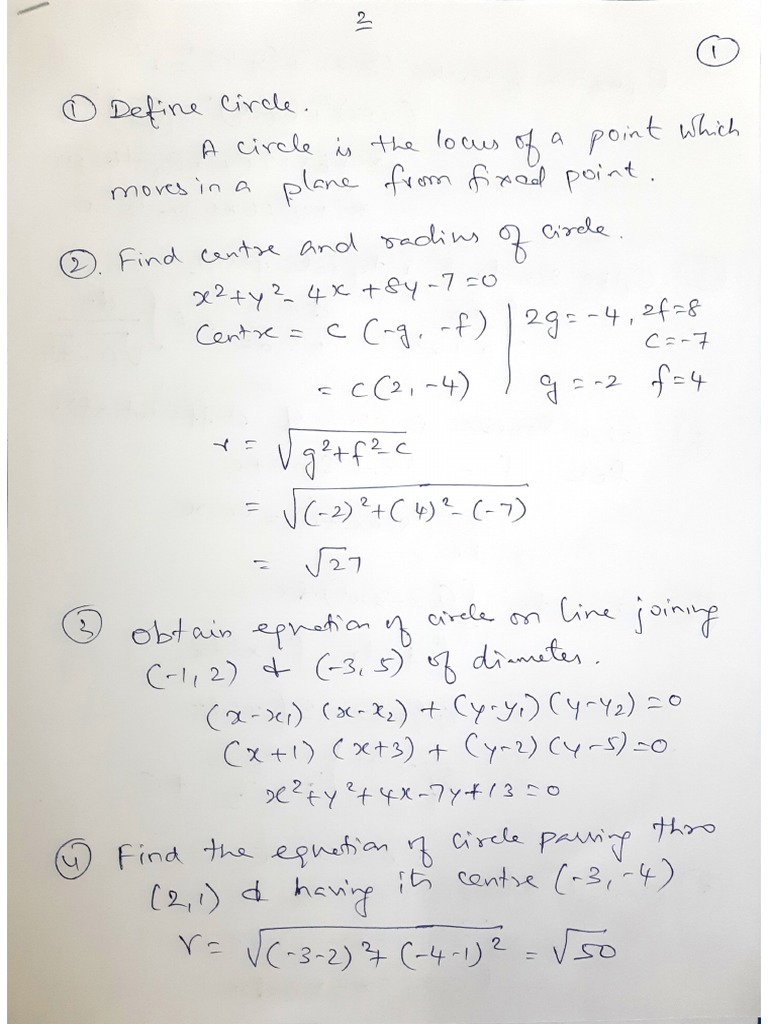 2
①
① Define circle.
A circle is the locus of a point which
moves in a plane from fixed point.
②. Find centre and radius of circle.
x²+y²-4x+8y-7=0
Centre = C (-g, -f) | 2g=-4, 2f=8
c=-7
= C(2, -4) g=-2 f=4
r = √g²+f²-c
= √(-2)²+(4)²-(-7)
= √27
③ Obtain equation of circle on line joining
(-1, 2) & (-3, 5) of diameter.
(x-x₁) (x-x₂) + (y-y₁) (y-y₂) = 0
(x+1) (x+3) + (y-2) (y-5)=0
x²+y²+4x-7y+13=0
④ Find the equation of circle passing thro
(2,1) & having its centre (-3, -4)
r= √(-3-2)²+(-4-1)² = √50